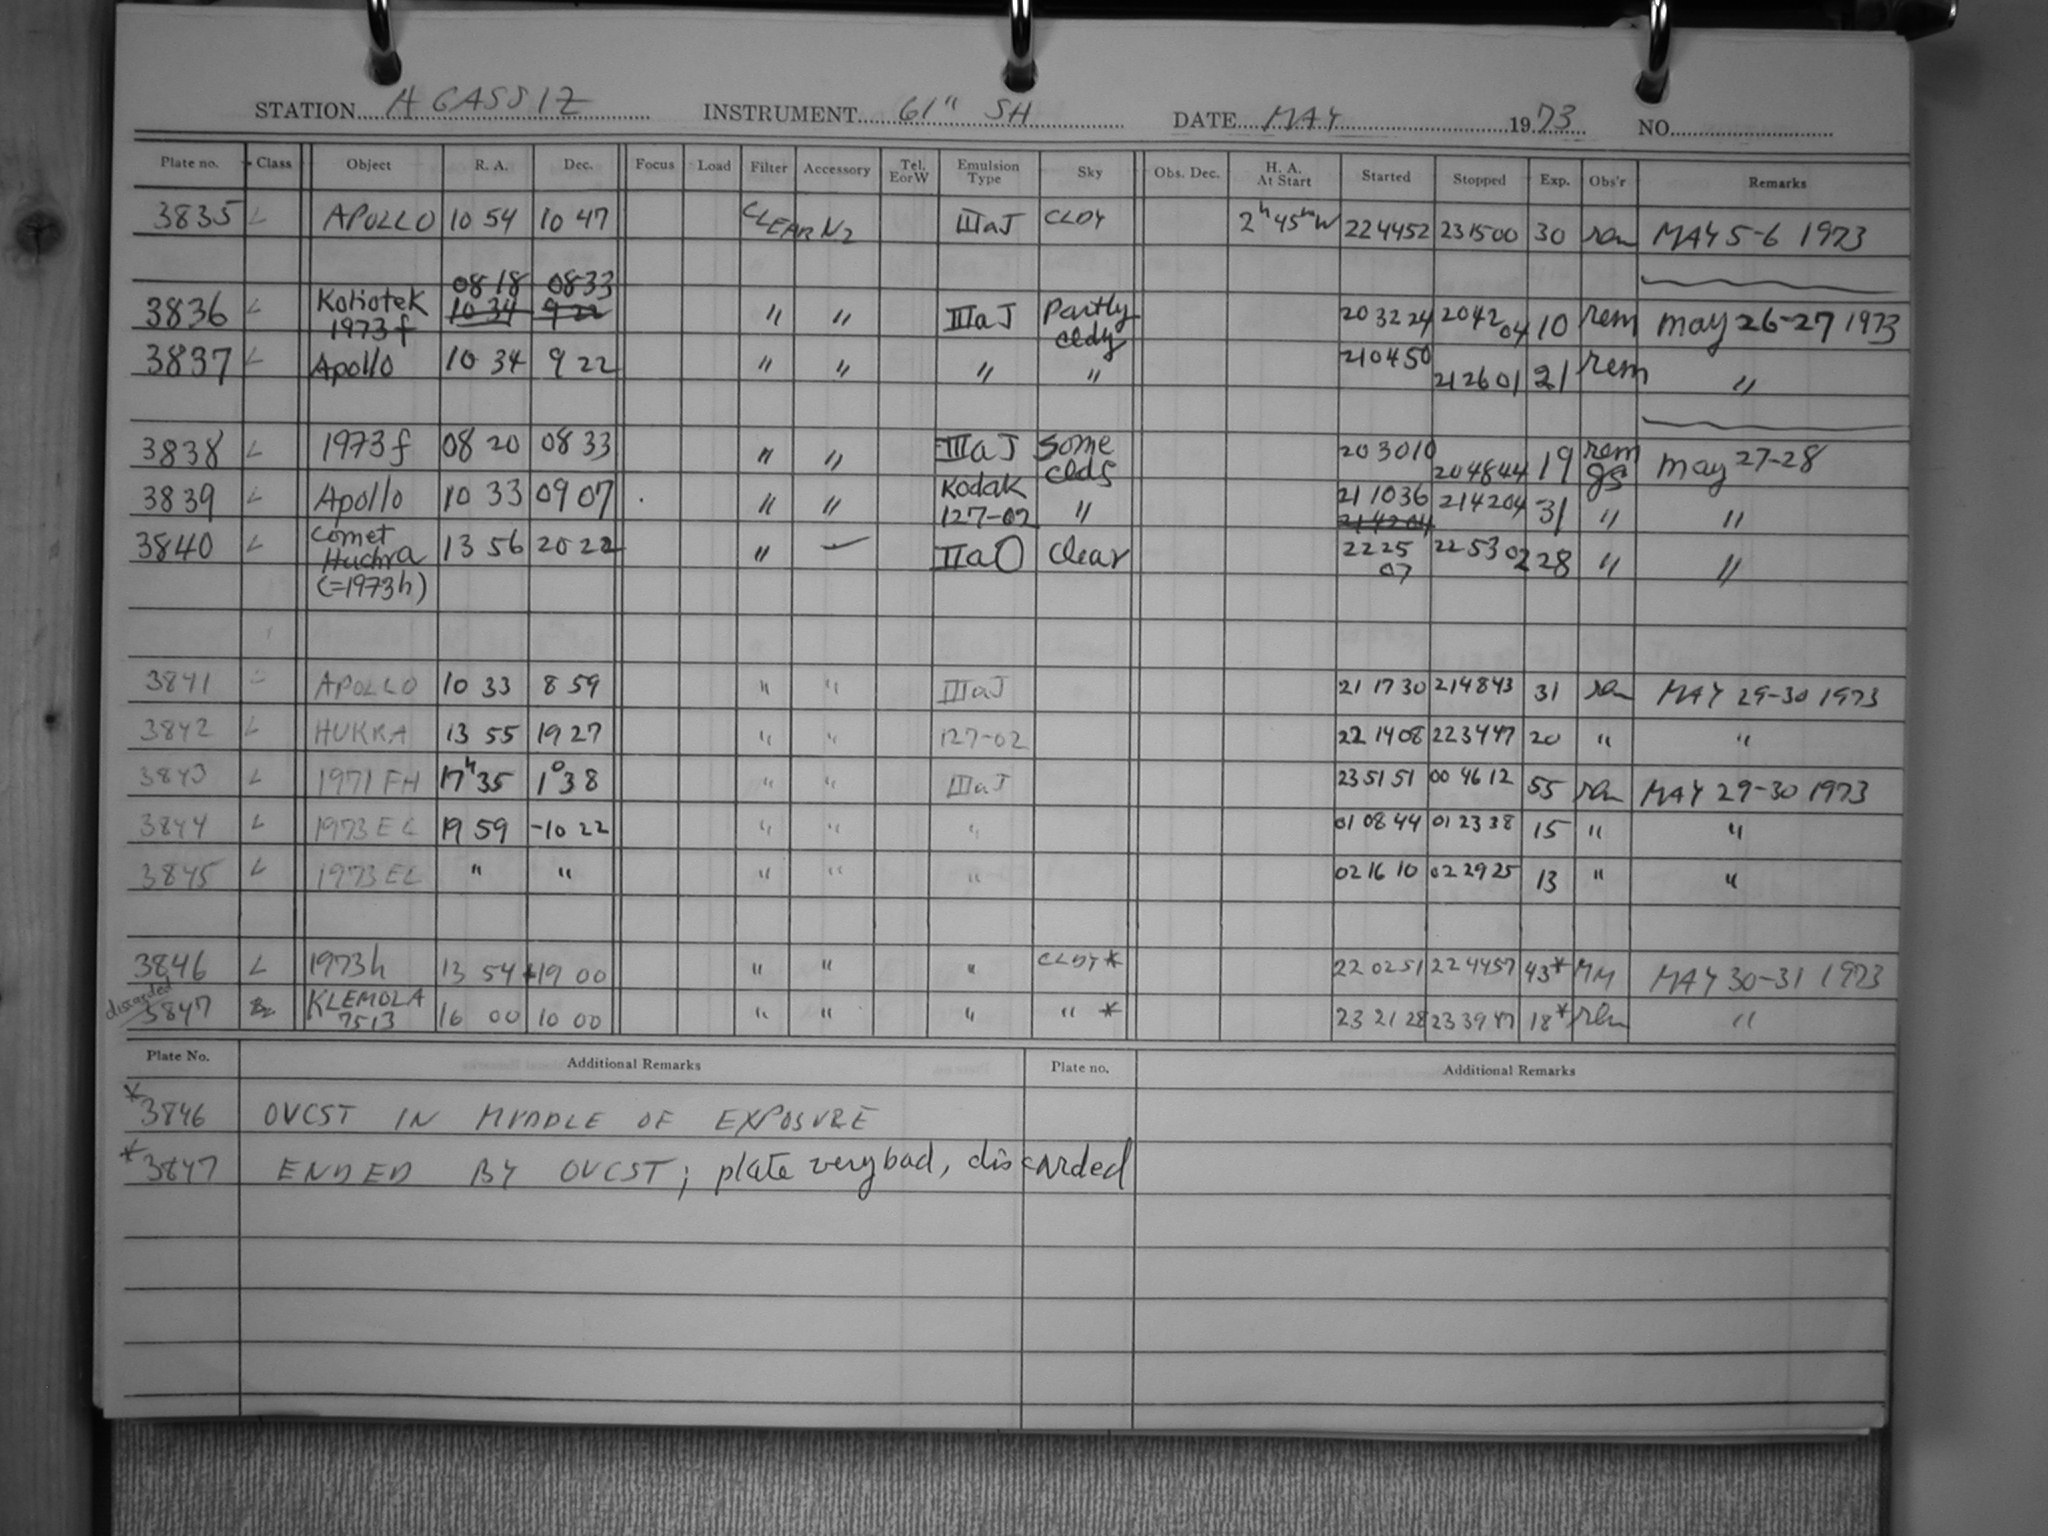 STATION AGASSIZ INSTRUMENT 61" SH DATE MAY 1973 NO.
Plate no. Class Object R. A. Dec. Focus Load Filter Accessory Tel. EorW Emulsion Type Sky Obs. Dec. H. A. At Start Started Stopped Exp. Obs'r Remarks
3835 L APOLLO 10 54 10 47 CLEAR N2 IIIaJ CLDY 2h45mW 224452 231500 30 rem MAY 5-6 1973
08 18 08 33
3836 L Kohotek 1973f 10 34 9 22 " " IIIaJ Partly cldy 203224 204204 10 rem May 26-27 1973
3837 L Apollo 10 34 9 22 " " " " 210450 212601 21 rem "
3838 L 1973f 08 20 08 33 " " IIIaJ Some clds 203010 204844 19 rem gs May 27-28
3839 L Apollo 10 33 09 07 " " Kodak 127-02 " 211036 214204 214204 31 " "
3840 L Comet Huchra (=1973h) 13 56 20 22 " IIaO clear 222507 225302 28 " "
3841 L APOLLO 10 33 8 59 " " IIIaJ 21 17 30 214843 31 rem MAY 29-30 1973
3842 L HUKRA 13 55 19 27 " " 127-02 22 1408 223447 20 " "
3843 L 1971 FH 17h35 1°38 " " IIIaJ 23 51 51 00 46 12 55 rem MAY 29-30 1973
3844 L 1973 EC 19 59 -10 22 " " " 01 08 44 01 23 38 15 " "
3845 L 1973 EC " " " " " 02 16 10 02 29 25 13 " "
3846 L 1973h 13 54 +19 00 " " " CLDY* 22 0251 22 4457 43* MM MAY 30-31 1973
discarded
3847 KLEMOLA 7513 16 00 10 00 " " " " * 23 21 28 23 39 47 18* rem "
Plate No. Additional Remarks Plate no. Additional Remarks
*3846 OVCST IN MIDDLE OF EXPOSURE
*3847 ENDED BY OVCST; plate very bad, discarded